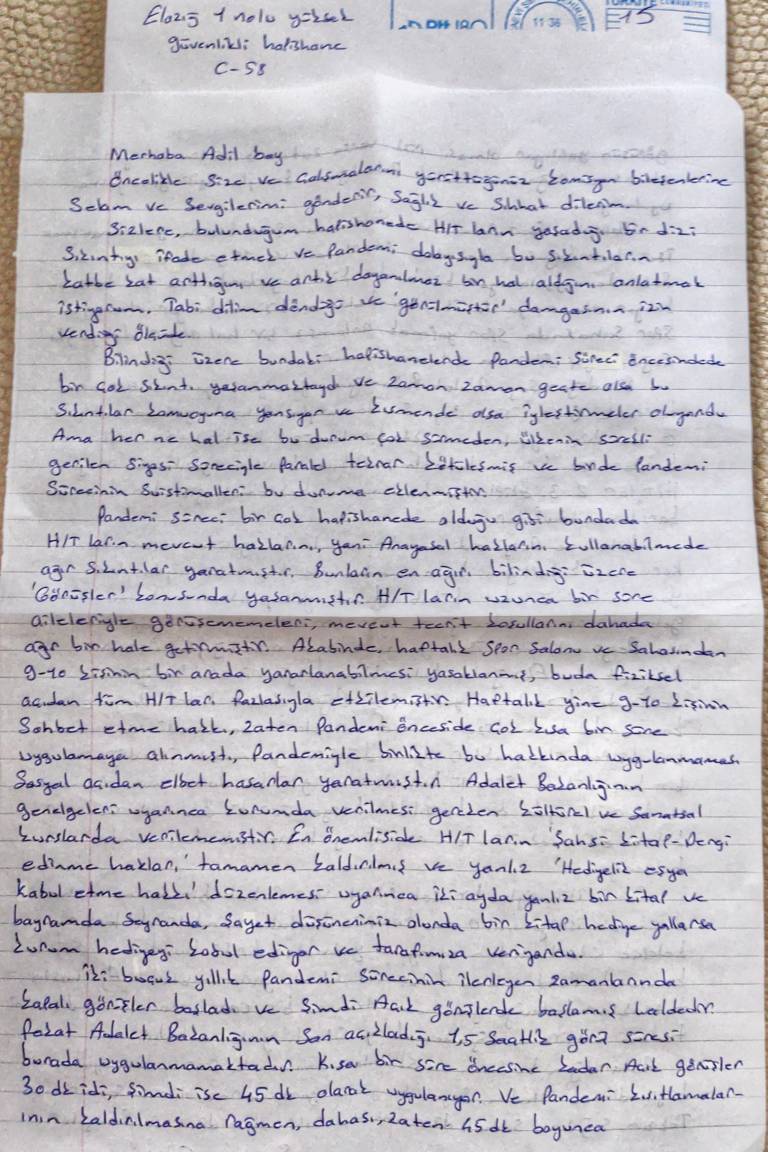 Elazığ 1 nolu yüksek
güvenlikli hapishane
C-58
11 36
TÜRKİYE
15
Merhaba Adil bey
Öncelikle Size ve Çalışmalarını yürüttüğünüz komisyon bileşenlerine
Selam ve Sevgilerimi gönderir, Sağlık ve Sıhhat dilerim.
Sizlere, bulunduğum hapishanede H/T ların yaşadığı bir dizi
Sıkıntıyı ifade etmek ve Pandemi dolayısıyla bu sıkıntıların
katbe kat arttığını ve artık dayanılmaz bir hal aldığını anlatmak
istiyorum. Tabi dilim döndüğü ve 'görülmüştür' damgasının izin
verdiği ölçüde.
Bilindiği üzere burdaki hapishanelerde Pandemi Süreci öncesindede
bir çok sıkıntı yaşanmaktaydı ve zaman zaman geçte olsa bu
Sıkıntılar kamuoyuna yansıyor ve kısmende olsa iyleştirmeler oluyordu
Ama her ne hal ise bu durum çok sürmeden, ülkenin sürekli
gerilen Siyasi Süreciyle Paralel tekrar kötüleşmiş ve birde Pandemi
Sürecinin Suistimalleri bu duruma eklenmiştir.
Pandemi süreci bir çok hapishanede olduğu gibi burdada
H/T ların mevcut haklarını, yani Anayasal haklarını kullanabilmede
ağır sıkıntılar yaratmıştır. Bunların en ağırı bilindiği üzere
'Görüşler' konusunda yaşanmıştır. H/T ların uzunca bir süre
aileleriyle görüşememeleri, mevcut tecrit koşullarını dahada
ağır bir hale getirmiştir. Akabinde, haftalık Spor Salonu ve Sahasından
9-10 kişinin bir arada yararlanabilmesi yasaklanmış, buda fiziksel
açıdan tüm H/T ları fazlasıyla etkilemiştir. Haftalık yine 9-10 kişinin
Sohbet etme hakkı, zaten Pandemi önceside çok kısa bir süre
uygulamaya alınmıştı, Pandemiyle birlikte bu hakkında uygulanmaması
Sosyal açıdan elbet hasarlar yaratmıştır. Adalet Bakanlığının
genelgeleri uyarınca kurumda verilmesi gereken kültürel ve Sanatsal
kurslarda verilememiştir. En önemliside H/T ların 'Şahsi kitap-Dergi
edinme hakları,' tamamen kaldırılmış ve yanlız 'Hediyelik eşya
Kabul etme hakkı' düzenlemesi uyarınca iki ayda yanlız bir kitap ve
bayramda Seyranda, şayet düşünenimiz olurda bir kitap hediye yollarsa
kurum hediyeyi kabul ediyor ve tarafımıza veriyordu.
İki buçuk yıllık Pandemi Sürecinin ilerleyen zamanlarında
kapalı görüşler başladı ve Şimdi Açık görüşlerde başlamış haldedir.
fakat Adalet Bakanlığının Son açıkladığı 1,5 Saatlik görüş süresi
burada uygulanmamaktadır. Kısa bir süre öncesine kadar Açık görüşler
30 dk idi, Şimdi ise 45 dk olarak uygulanıyor. Ve Pandemi kısıtlamalar-
ının kaldırılmasına rağmen, dahası, zaten 45 dk boyunca